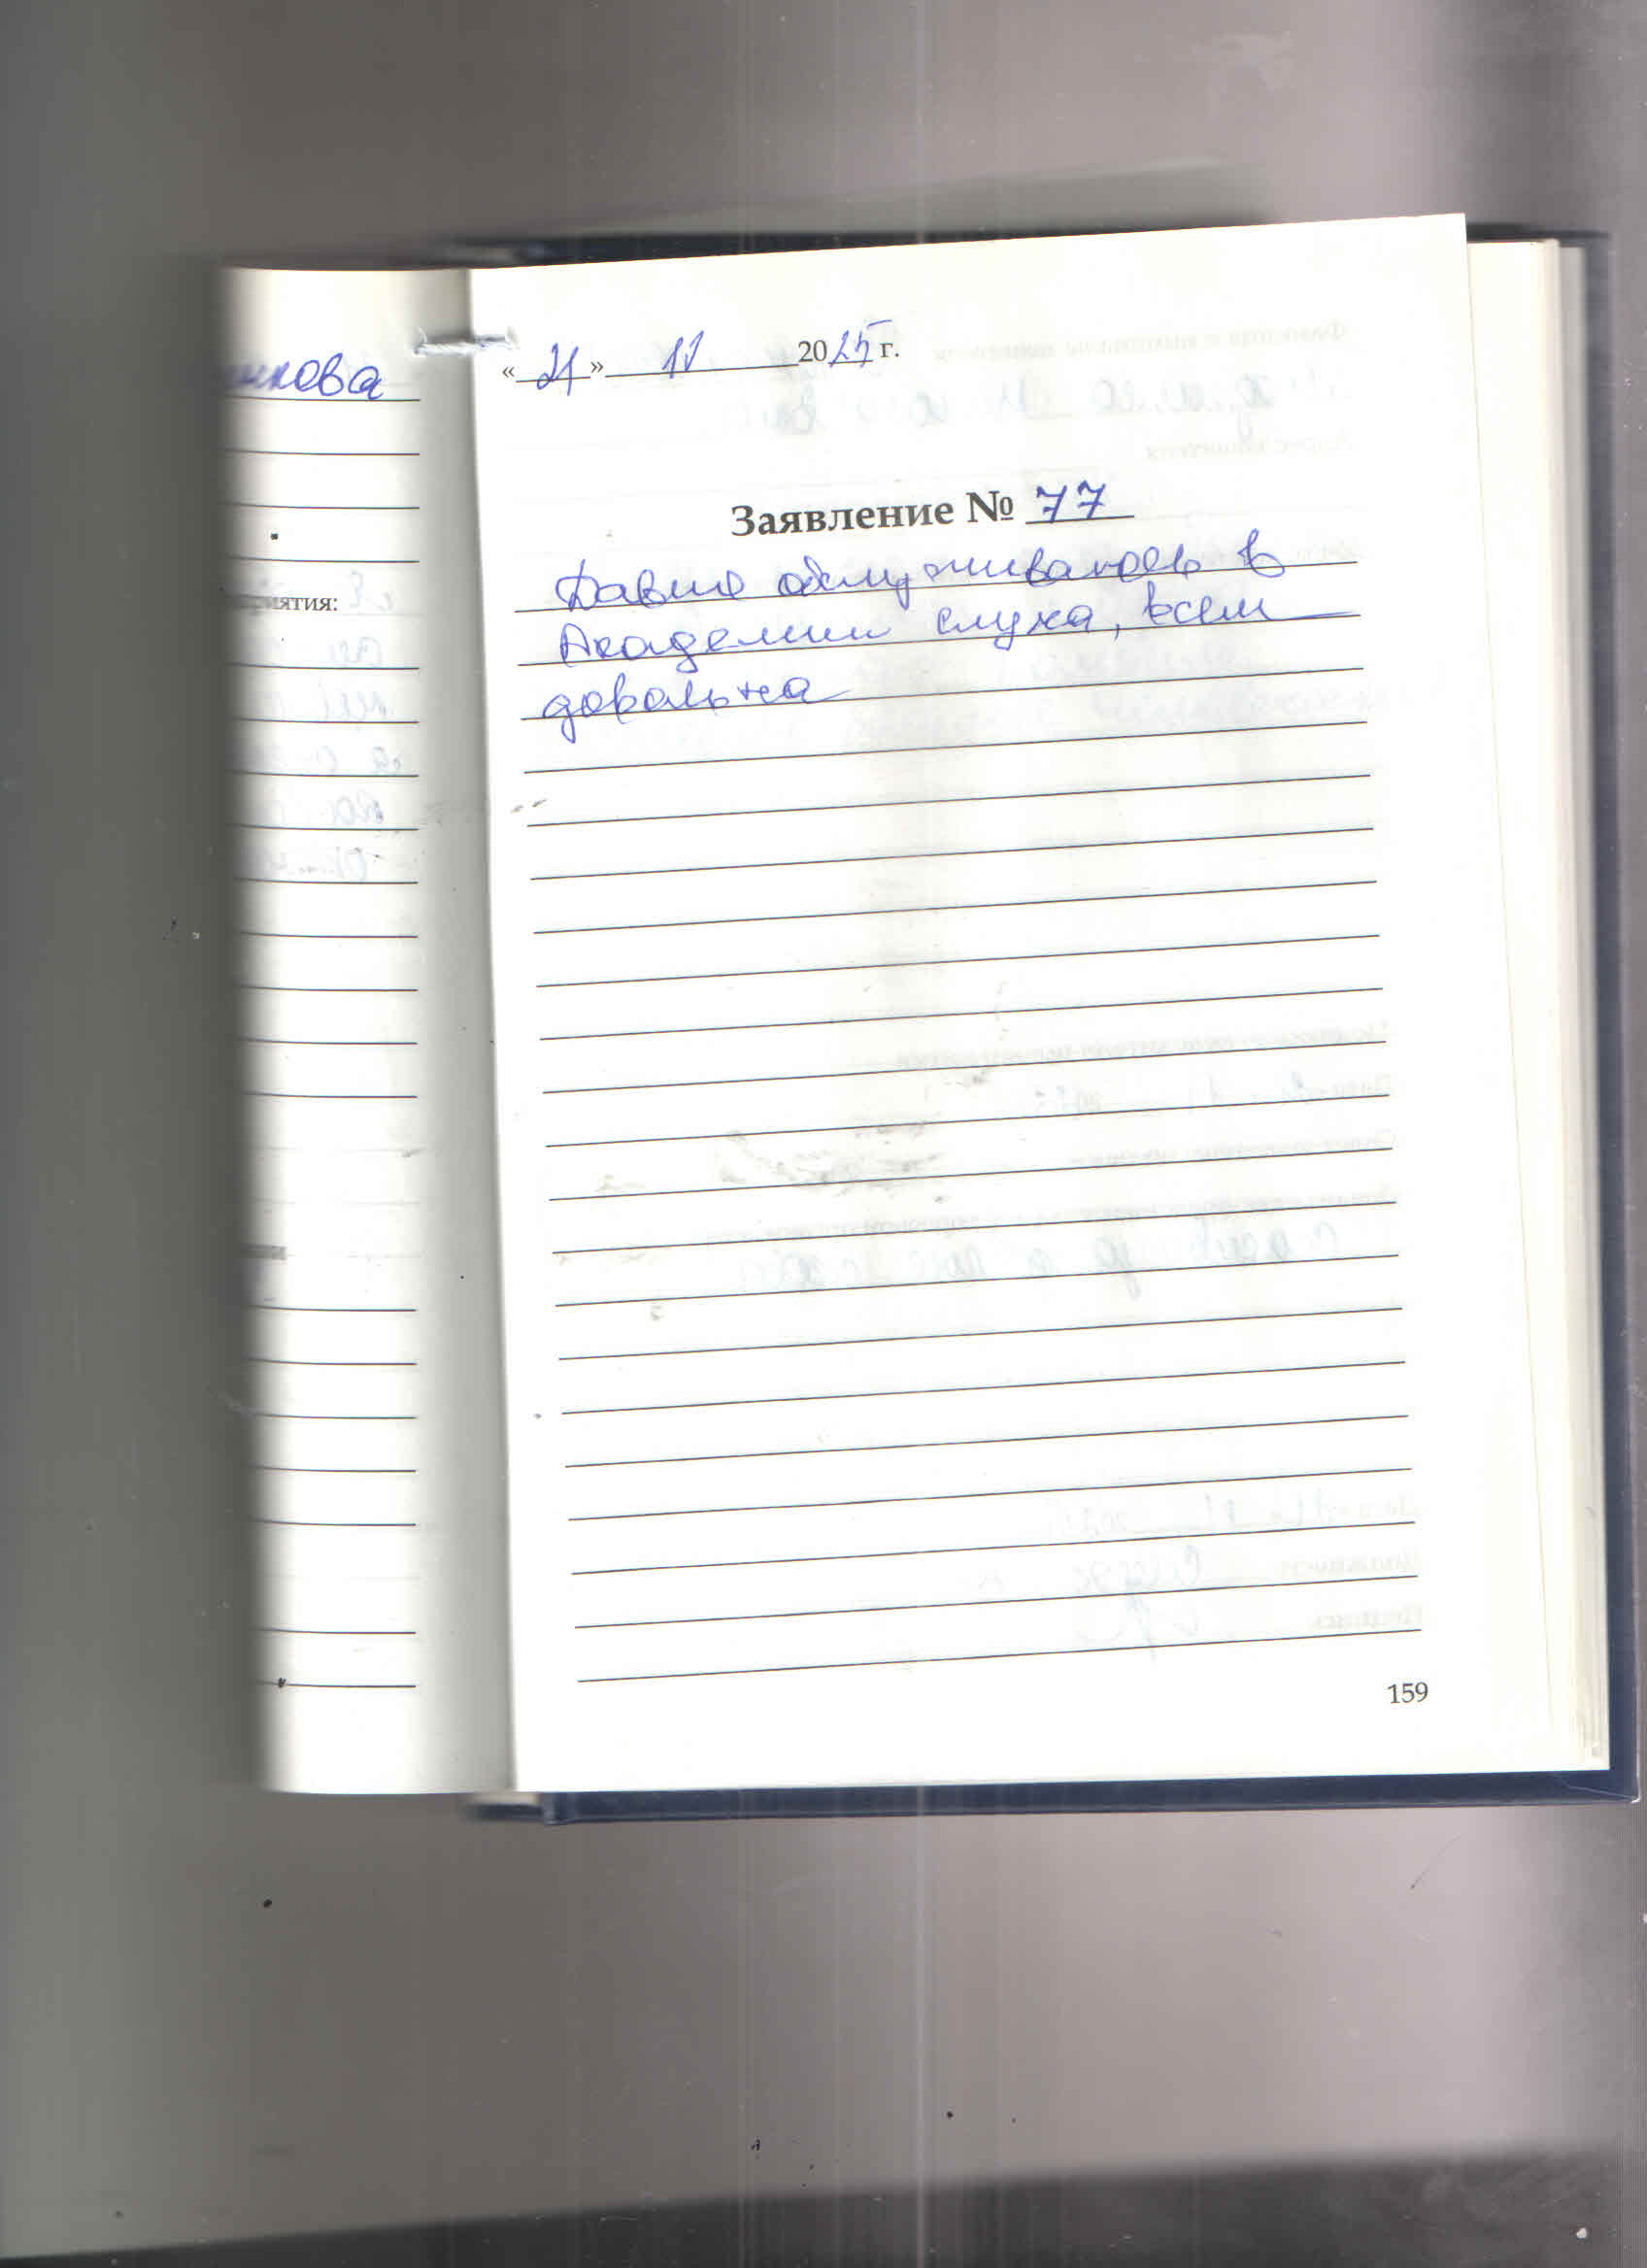 «21» 11 2025 г.
Заявление № 77
Давно обслуживаюсь в
Академии слуха, всем
довольна
159